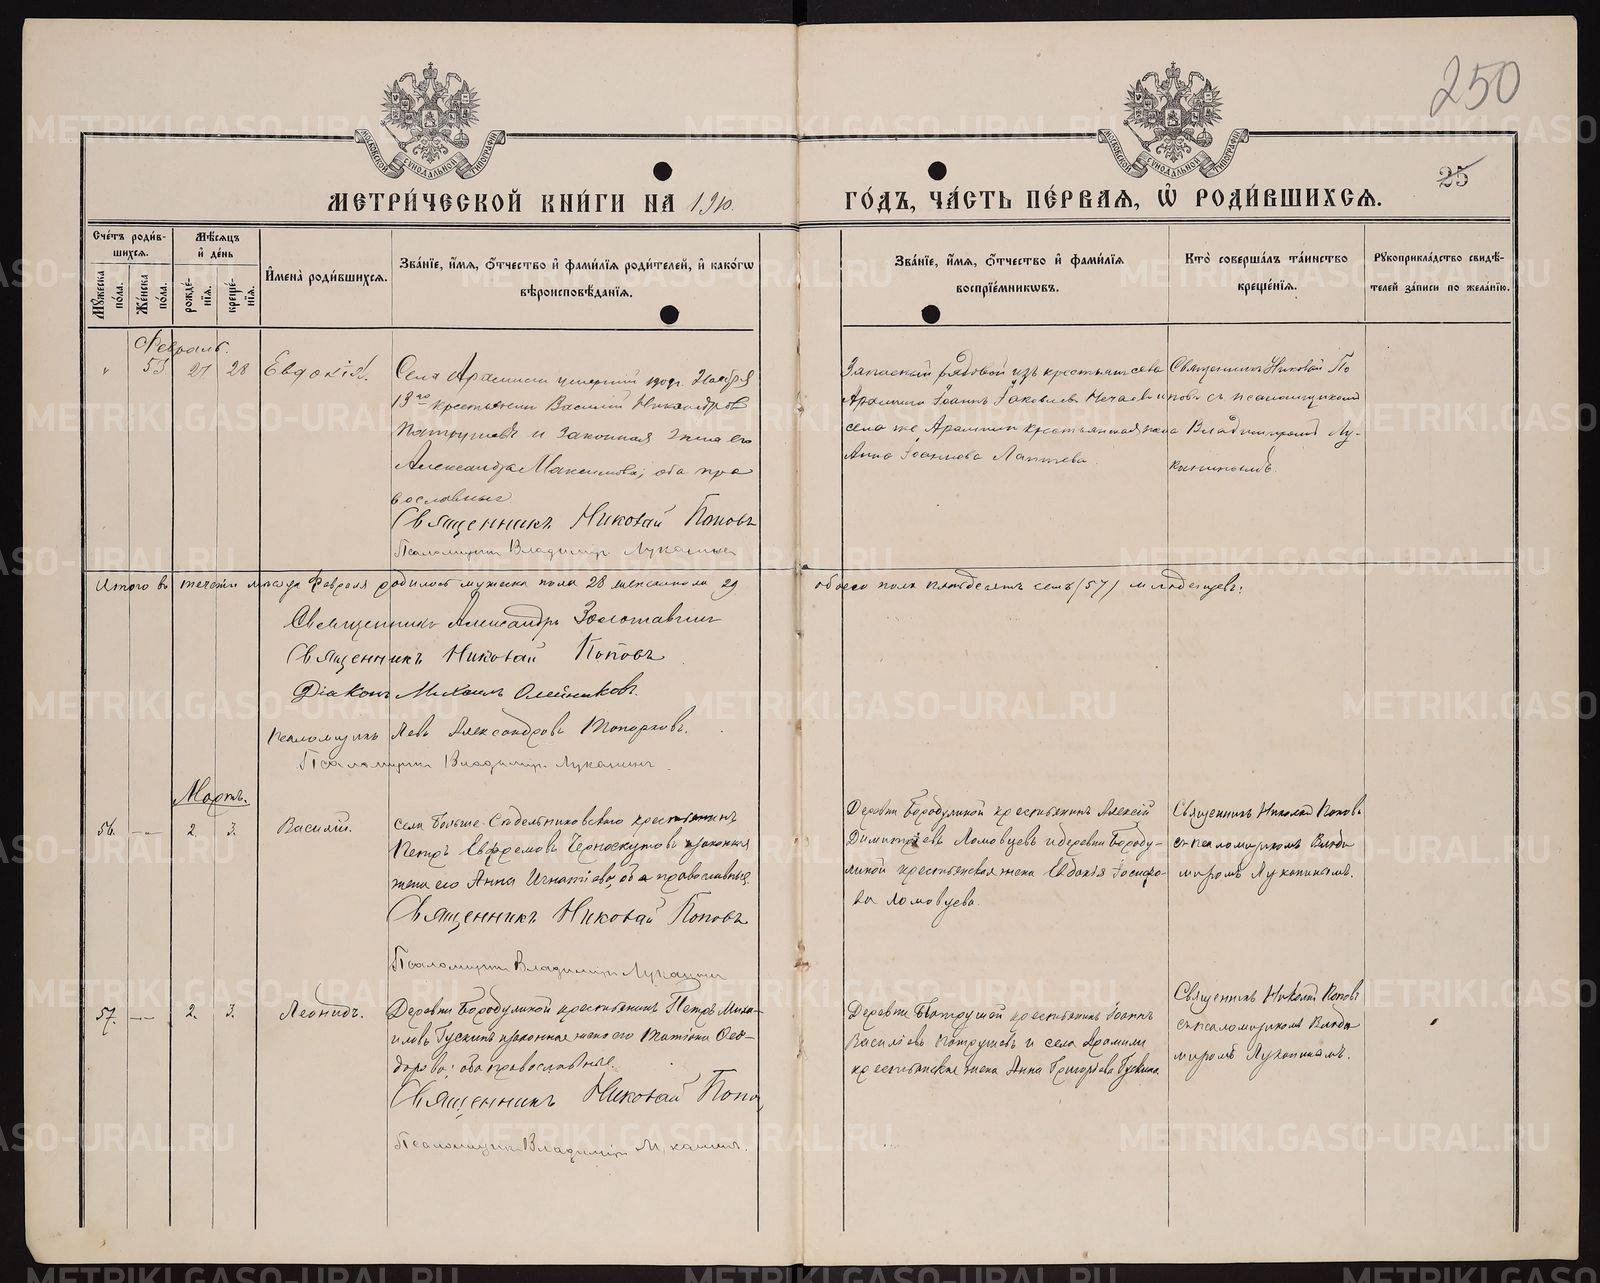 250
25
МОСКОВСКОЙ СѴНОДАЛЬНОЙ ТИПОГРАФІИ
МОСКОВСКОЙ СѴНОДАЛЬНОЙ ТИПОГРАФІИ
МЕТРИ́ЧЕСКОЙ КНИ́ГИ НА 1910.
ГО́ДЪ, ЧА́СТЬ ПЕ́РВАѦ, Ѡ҆ РОДИ́ВШИХСѦ.
Сче́тъ роди́в-
шихсѧ.
Мꙋ́жеска по́ла.
Же́нска по́ла.
Мѣ́сѧцъ и҆ де́нь
рожде́-нїѧ.
креще́-нїѧ.
И҆мена̀ роди́вшихсѧ.
Зва́нїе, и҆́мѧ, ѻ҆́тчество и҆ фами́лїѧ роди́телей, и҆ како́гѡ
вѣроисповѣ́данїѧ.
Зва́нїе, и҆́мѧ, ѻ҆́тчество и҆ фами́лїѧ
воспрїе́мникѡвъ.
Кто̀ соверша́лъ та́инство
креще́нїѧ.
Рꙋкоприкла́дство свидѣ́-
телей за́писи по жела́нїю.
Февраль.
" 55 27 28 Евдокія.
Села Арамили умершій 1909г. Ноября
13го крестьянин Василій Никандровъ
Патрушевъ и законная жена его
Александра Максимова; оба пра
вославные
Священникъ Николай Поповъ
Псаломщикъ Владимір Луканинъ
Запасный рядовой изъ крестьян села
Арамили Іоаннъ Іаковлевъ Нечаевъ и
села же Арамили крестьянская жена
Анна Іоаннова Лаптева.
Священникъ Николай По
повъ съ псаломщикомъ
Владиміромъ Лу-
канинымъ.
Итого въ течении месяца Февраля родилось мужеска пола 28 женска пола 29
обоего пола пятьдесятъ семь (57) младенцевъ.
Священникъ Александръ Золотавин
Священникъ Николай Поповъ
Діаконъ Михаилъ Олейниковъ.
Псаломщикъ Левъ Александровъ Топорковъ.
Псаломщикъ Владимір Луканинъ.
Мартъ.
56. — 2. 3. Василій.
села Больше-Седельниковскаго крестьянинъ
Петръ Евфремовъ Черноскутовъ и законная
жена его Анна Игнатіева; оба православные.
Священникъ Николай Поповъ
Псаломщикъ Владимір Луканинъ
Деревни Бородулиной крестьянинъ Алексій
Димитріевъ Ломовцевъ и деревни Бороду-
линой крестьянская жена Евдокія Іосифо-
ва Ломовцева.
Священникъ Николай Поповъ
съ псаломщикомъ Влади
міромъ Луканинымъ.
57. — 2. 3. Леонидъ.
Деревни Бородулиной крестьянинъ Петръ Миха-
иловъ Гускинъ и законная жена его Татіана Ѳео-
дорова; оба православные.
Священникъ Николай Попов
Псаломщикъ Владимір Луканинъ.
Деревни Патрушей крестьянинъ Іоаннъ
Василіевъ Патрушевъ и села Арамили
крестьянская жена Анна Григорьева Гускина.
Священникъ Николай Поповъ
съ псаломщикомъ Влади
міромъ Луканинымъ.
METRIKI.GASO-URAL.RU